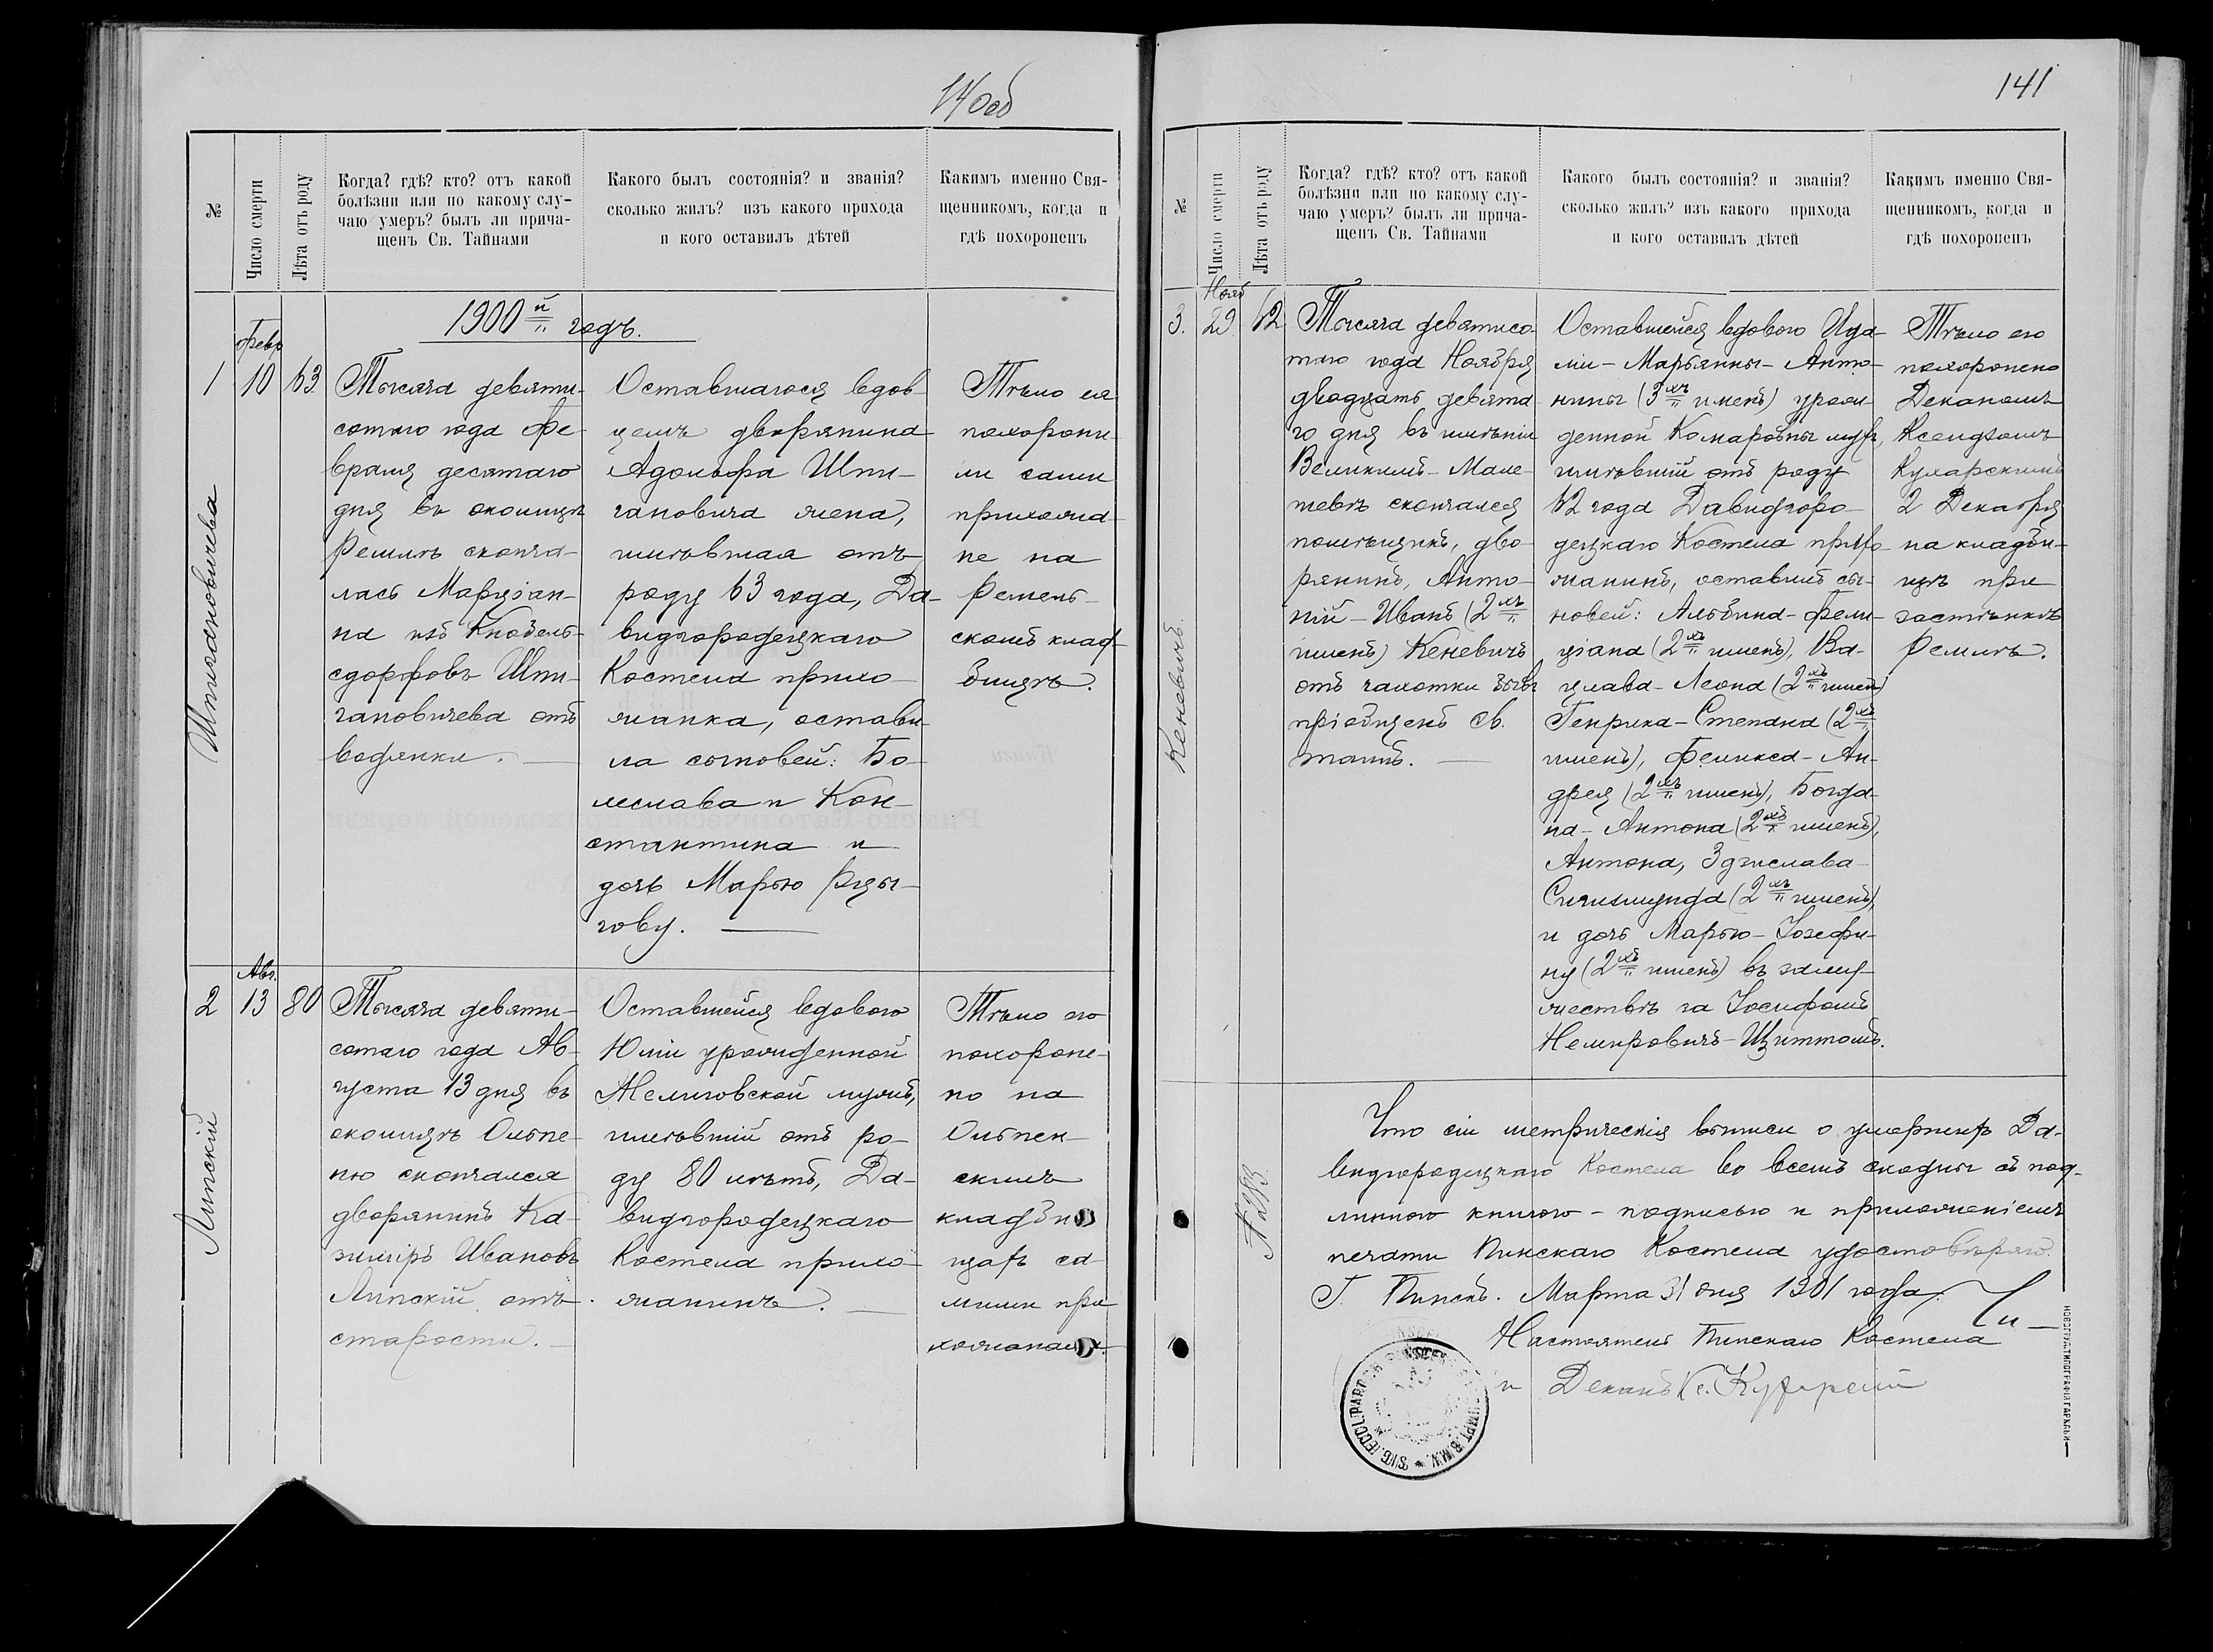 140об
№
Число смерти
Лѣта отъ роду
Когда? гдѣ? кто? отъ какой
болѣзни или по какому слу-
чаю умеръ? былъ ли прича-
щенъ Св. Тайнами
Какого былъ состоянія? и званія?
сколько жилъ? изъ какого прихода
и кого оставилъ дѣтей
Какимъ именно Свя-
щенникомъ, когда и
гдѣ похороненъ
1900й годъ.
Штыгановичева
Февр
1
10
63
Тысяча девяти-
сотаго года Фе-
враля десятаго
дня въ околицѣ
Ремлѣ сконча-
лась Марціан-
на изъ Кнобель-
сдорфовъ Шты-
гановичева отъ
водянки.
Оставшагося вдов-
цемъ дворянина
Адольфа Шты-
гановича жена,
имѣвшая отъ
роду 63 года, Да-
видгородецкаго
Костела прихо-
жанка, остави-
ла сыновей: Бо-
леслава и Кон-
стантина и
дочь Марью Рды-
гову.
Тѣло ея
похорони-
ли сами
прихожа-
не на
Ремель-
скомъ клад-
бищѣ.
Липскій
Авг.
2
13
80
Тысяча девяти-
сотаго года Ав-
густа 13 дня въ
околицѣ Ольпе-
нѣ скончался
дворянинъ Ка-
зиміръ Ивановъ
Липскій отъ
старости.
Оставшейся вдовою
Юліи урожденной
Мелиговской мужъ,
имѣвшій отъ ро-
ду 80 лѣтъ, Да-
видгородецкаго
Костела прихо-
жанинъ.
Тѣло его
похороне-
но на
Ольпен-
скимъ
кладби
щѣ са-
мими при
хожанами.
141
№
Число смерти
Лѣта отъ роду
Когда? гдѣ? кто? отъ какой
болѣзни или по какому слу-
чаю умеръ? былъ ли прича-
щенъ Св. Тайнами
Какого былъ состоянія? и званія?
сколько жилъ? изъ какого прихода
и кого оставилъ дѣтей
Какимъ именно Свя-
щенникомъ, когда и
гдѣ похороненъ
Кеневичъ
Нояб
3.
29
62
Тысяча девятисо-
таго года Ноября
двадцать девята-
го дня въ имѣніи
Великимъ-Мале-
шевѣ скончался
помѣщикъ, дво-
рянинъ, Анто-
ній-Иванъ (2хъ
именъ) Кеневичъ
отъ чахотки бывъ
пріобщенъ св.
таинъ.
Оставшейся вдовою Ида-
ліи-Марьянны-Анто-
нины (3хъ именъ) урож-
денной Комаровны мужъ,
имѣвшій отъ роду
62 года Давидгоро-
децкаго Костела прихо-
жанинъ, оставилъ сы-
новей: Альбина-Фели-
ціана (2хъ именъ), Ва-
цлава-Леона (2хъ именъ)
Генрика-Степана (2хъ
именъ), Феликса-Ан-
дрея (2хъ именъ), Богда-
на-Антона (2хъ именъ),
Антона, Здзислава-
Сигизмунда (2хъ именъ),
и дочь Марью-Іозефи-
ну (2хъ именъ) въ заму-
жествѣ за Іосифомъ
Немировичъ-Щиттомъ.
Тѣло его
похоронено
Деканомъ
Ксендзомъ
Кухарскимъ
2 Декабря
на кладби-
щѣ при
застѣнкѣ
Ремлѣ.
Что сіи метрическія выписи о умершихъ Да-
видгородецкаго Костела во всемъ сходны съ под-
линною книгою - подписью и приложеніемъ
печати Пинскаго Костела удостовѣряю.
Г. Пинскъ. Марта 31 дня 1901 года.
Настоятель Пинскаго Костела
и Деканъ Кс. Кухарскій